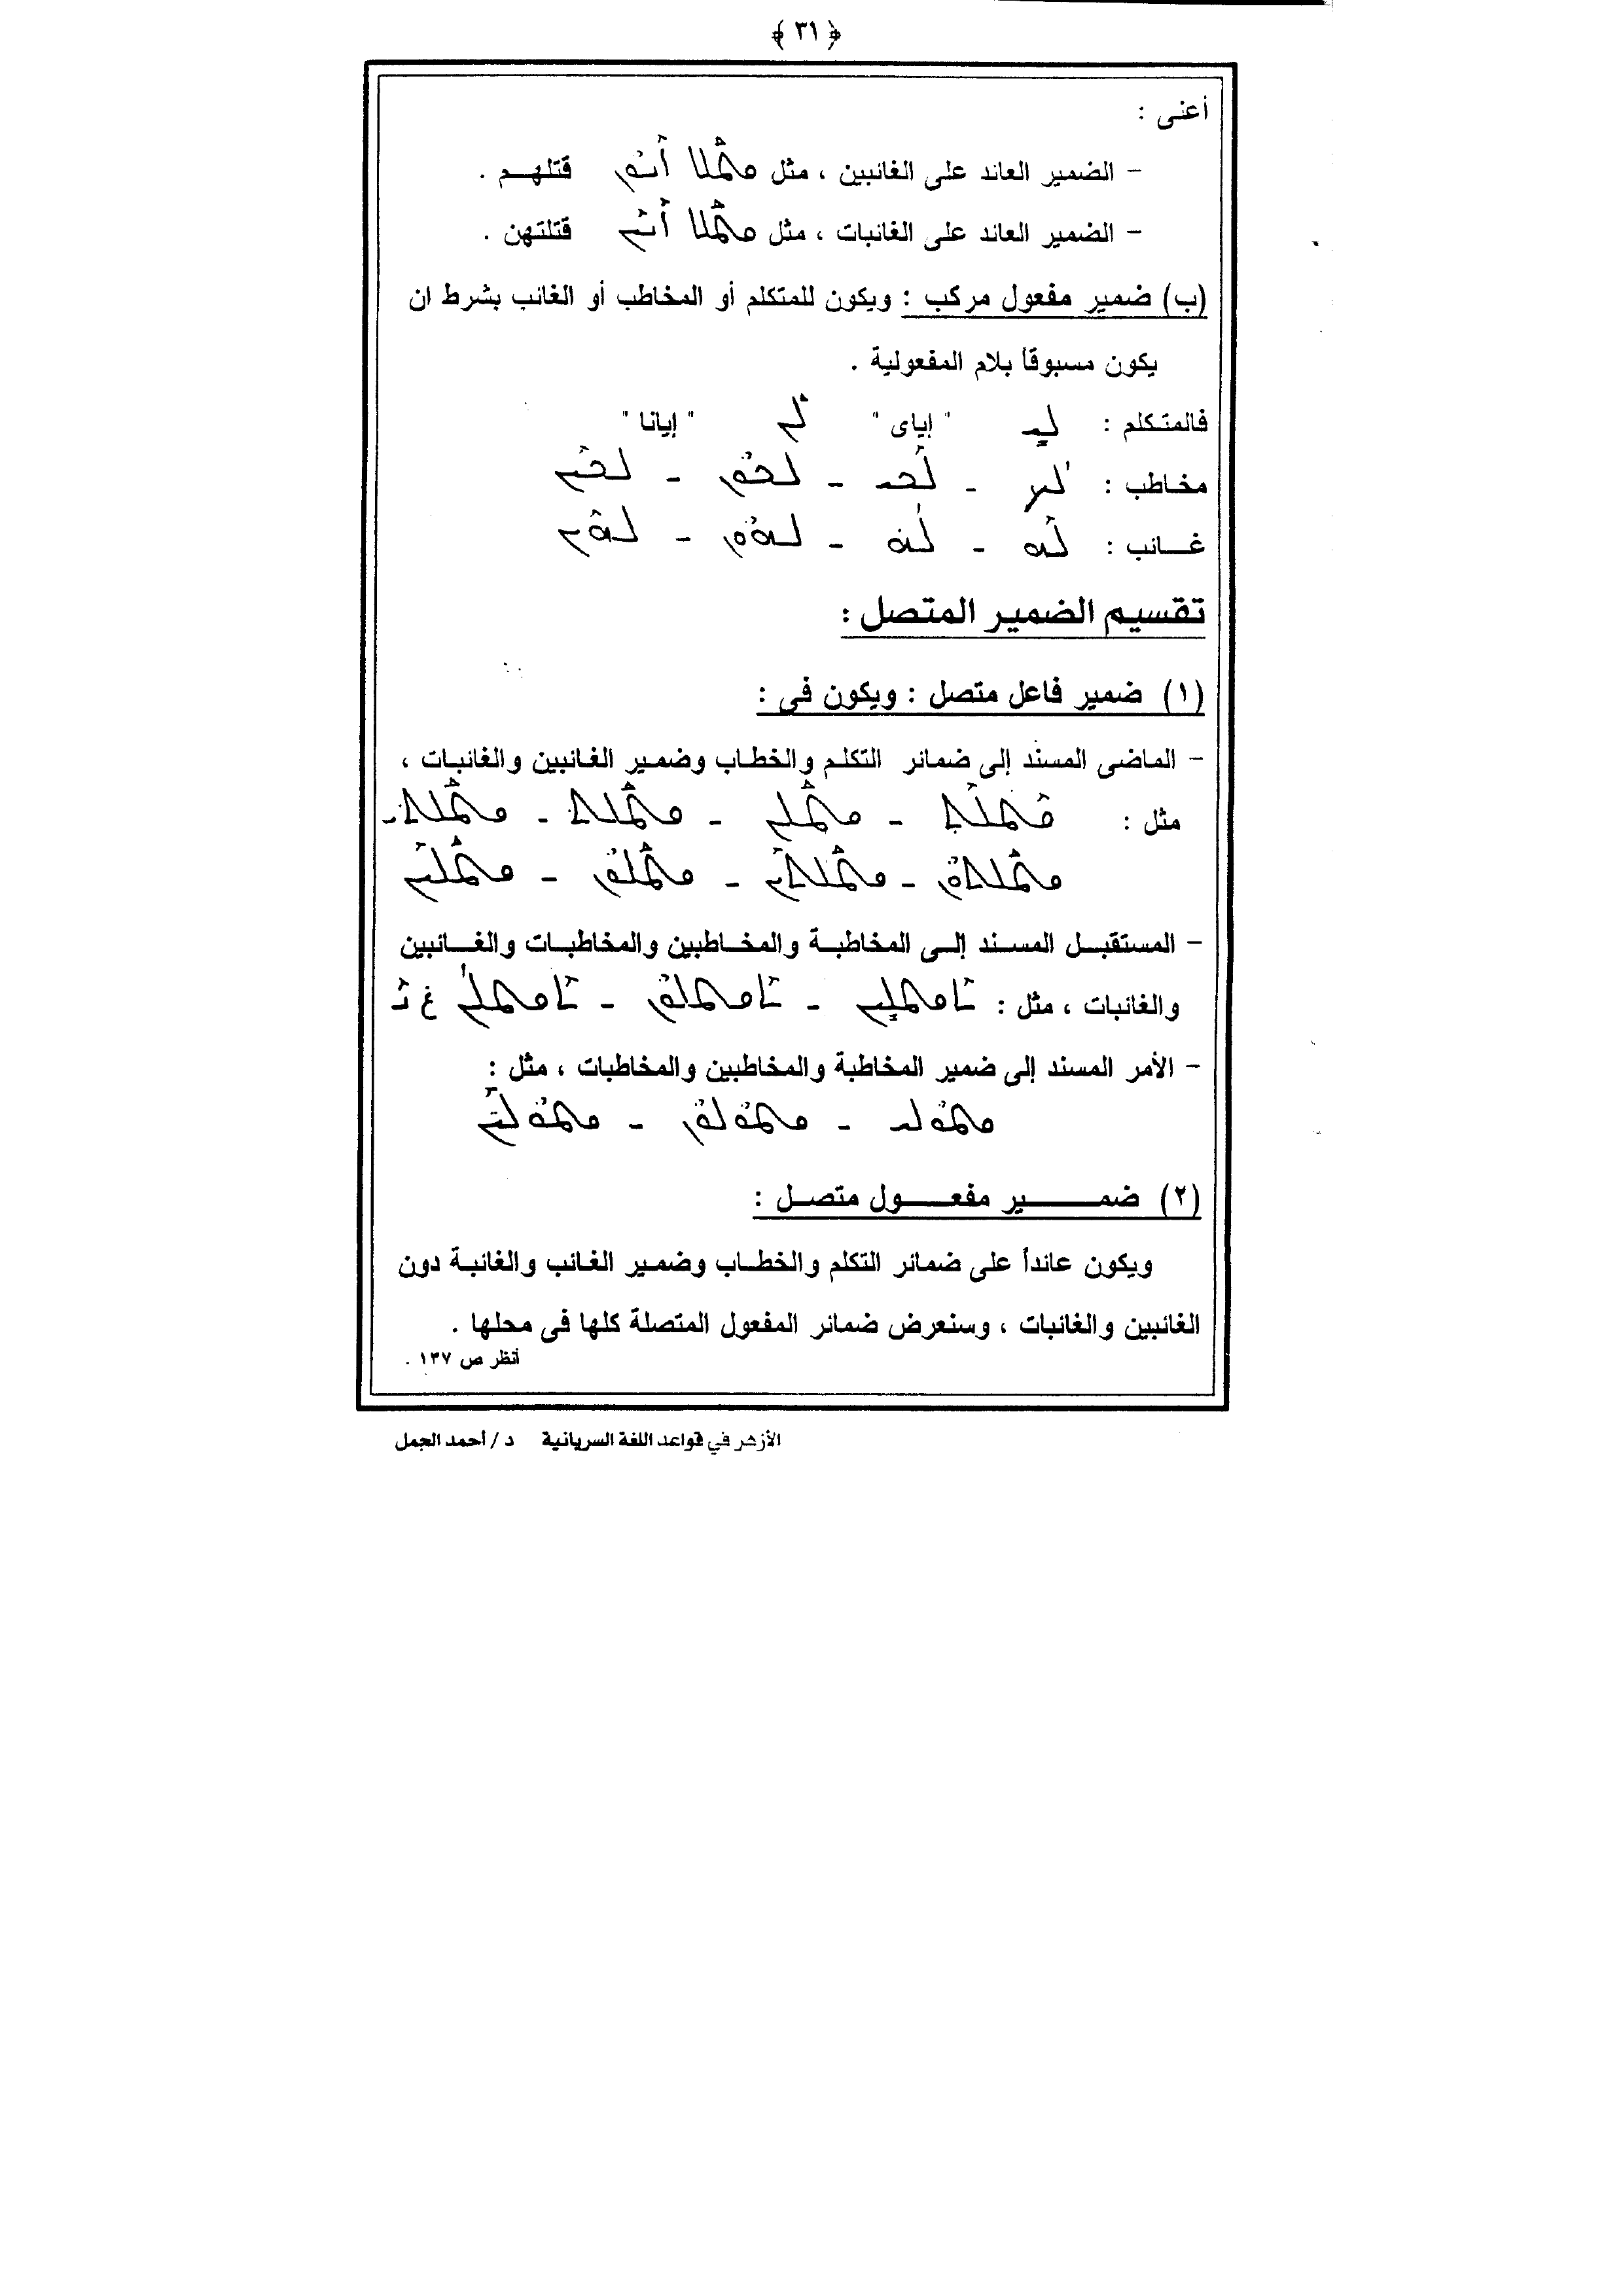 ﴿ ٣١ ﴾
أعنى :
- الضمير العائد على الغائبين ، مثل ܩܛܠܐ ܐܢܘܢ قتلهم .
- الضمير العائد على الغائبات ، مثل ܩܛܠܐ ܐܢܝܢ قتلتهن .
(ب) ضمير مفعول مركب : ويكون للمتكلم أو المخاطب أو الغائب بشرط ان
يكون مسبوقاً بلام المفعولية .
فالمتكلم : ܠܝ " إياى " ܠܢ " إيانا "
مخاطب : ܠܟ - ܠܟܝ - ܠܟܘܢ - ܠܟܝܢ
غائب : ܠܗ - ܠܗ - ܠܗܘܢ - ܠܗܝܢ
تقسيم الضمير المتصل :
(١) ضمير فاعل متصل : ويكون فى :
- الماضى المسند إلى ضمائر التكلم والخطاب وضمير الغائبين والغائبات ،
مثل : ܩܛܠܬ - ܩܛܠܢ - ܩܛܠܬ - ܩܛܠܬܝ
ܩܛܠܬܘܢ - ܩܛܠܬܝܢ - ܩܛܠܘܢ - ܩܛܠܝܢ
- المستقبل المسند إلى المخاطبة والمخاطبين والمخاطبات والغائبين
والغائبات ، مثل : ܬܩܛܠܝܢ - ܬܩܛܠܘܢ - ܬܩܛܠܢ غ ܢ
- الأمر المسند إلى ضمير المخاطبة والمخاطبين والمخاطبات ، مثل :
ܩܛܘܠܝ - ܩܛܘܠܘܢ - ܩܛܘܠܝܢ
(٢) ضمير مفعول متصل :
ويكون عائداً على ضمائر التكلم والخطاب وضمير الغائب والغائبة دون
الغائبين والغائبات ، وسنعرض ضمائر المفعول المتصلة كلها فى محلها .
أنظر ص ١٣٧ .
الأزهر في قواعد اللغة السريانية د / أحمد الجمل